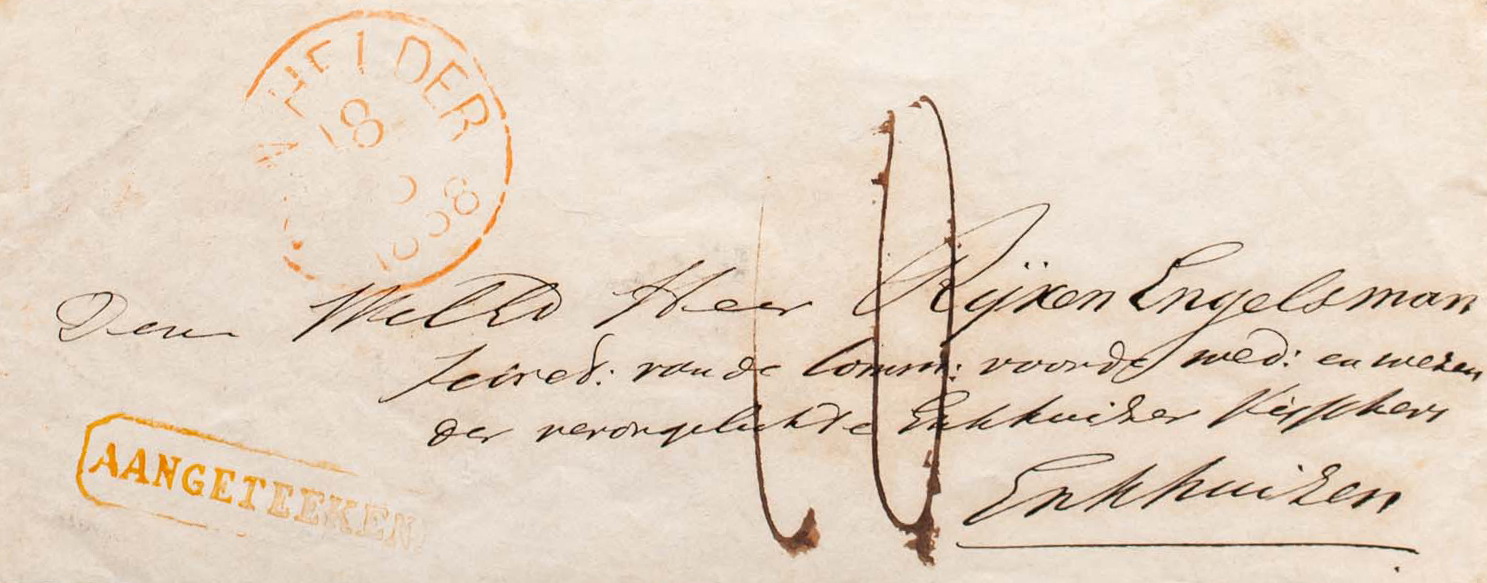 HELDER
18
1858
Den WelEd Heer Rijxen Engelsman
secred: van de Comm: voor de wed: en wezen
der verongelukte Enkhuizer Visschers
Enkhuizen
AANGETEEKEN